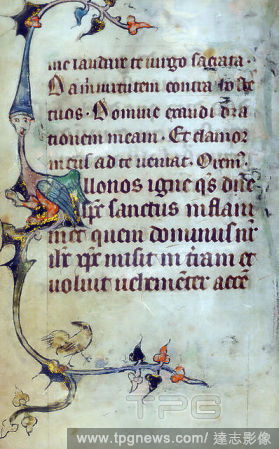 me laudare te uirgo sacrata.
Da michi uirtutem contra hostes
tuos. Domine exaudi ora
tionem meam. Et clamor
meus ad te ueniat. Orem.
Illo nos igne qs dne
spc sanctus inflam
met quem dominus nr
ihc xpc misit in tram et
uoluit uehementer accen
TPG
www.tpgnews.com/ 達志影像